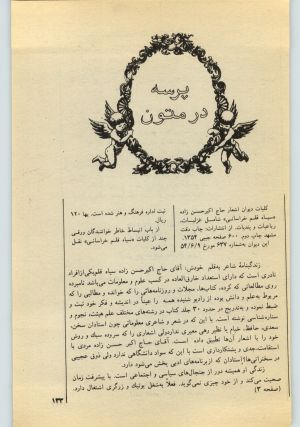 پرسه
در متون
کلیات دیوان اشعار حاج اکبرحسن زاده
«سیاه قلم خراسانی» شامل غزلیات،
رباعیات و پندیات. از انتشارات: چاپ دقت
مشهد چاپ دوم. ۶۰۰ صفحه جیبی ۱۳۵۴.
این دیوان بشماره ۶۲۷ مورخ ۵۴/۶/۹
ثبت اداره فرهنگ و هنر شده است. بها ۱۲۰
ریال.
از باب انبساط خاطر خوانندگان ورقی
چند از کلیات «سیاه قلم خراسانی» نقل
می‌شود.
زندگینامهٔ شاعر به‌قلم خودش: آقای حاج اکبرحسن زاده سیاه قلم‌یکی‌ازافراد
نادری است که دارای استعداد خارق‌العاده در کسب علوم و معلومات می‌باشد نامبرده
روی مطالعاتی که کرده، کتاب‌ها، مجلات و روزنامه‌هائی را که خوانده و مطالبی را که
مربوط به‌علم و دانش بوده از رادیو شنیده همه را عیناً در اندیشه و فکر خود ثبت و
ضبط نموده و بتدریج در حدود ۳۰ جلد کتاب در رشته‌های مختلف علم هیئت، نجوم و
ستاره‌شناسی نوشته است. با این که در شعر و شاعری معلوماتی چون استادان سخن،
سعدی، حافظ، خیام یا نظیر رهی معیری ندارد ولی اشعاری را که سروده سبک و روش
خود را با اشعار آن‌ها تطبیق داده است. آقای حاج اکبر حسن زاده مردی با
استقامت، جدی و پشتکارداری است با این که سواد دانشگاهی ندارد ولی ذوق عجیبی
در سخنرانی‌ها [استادان که ازبرنامه‌های ادبی پخش می‌شود دارد.
زندگی او همیشه دور از جنجال‌های سیاسی و اجتماعی است. با پیشرفت زمان
صحبت می‌کند و از خود چیزی نمی‌گوید. فعلاً به‌شغل یونیک و زرگری اشتغال دارد.
(صفحه ۳)
۱۳۳